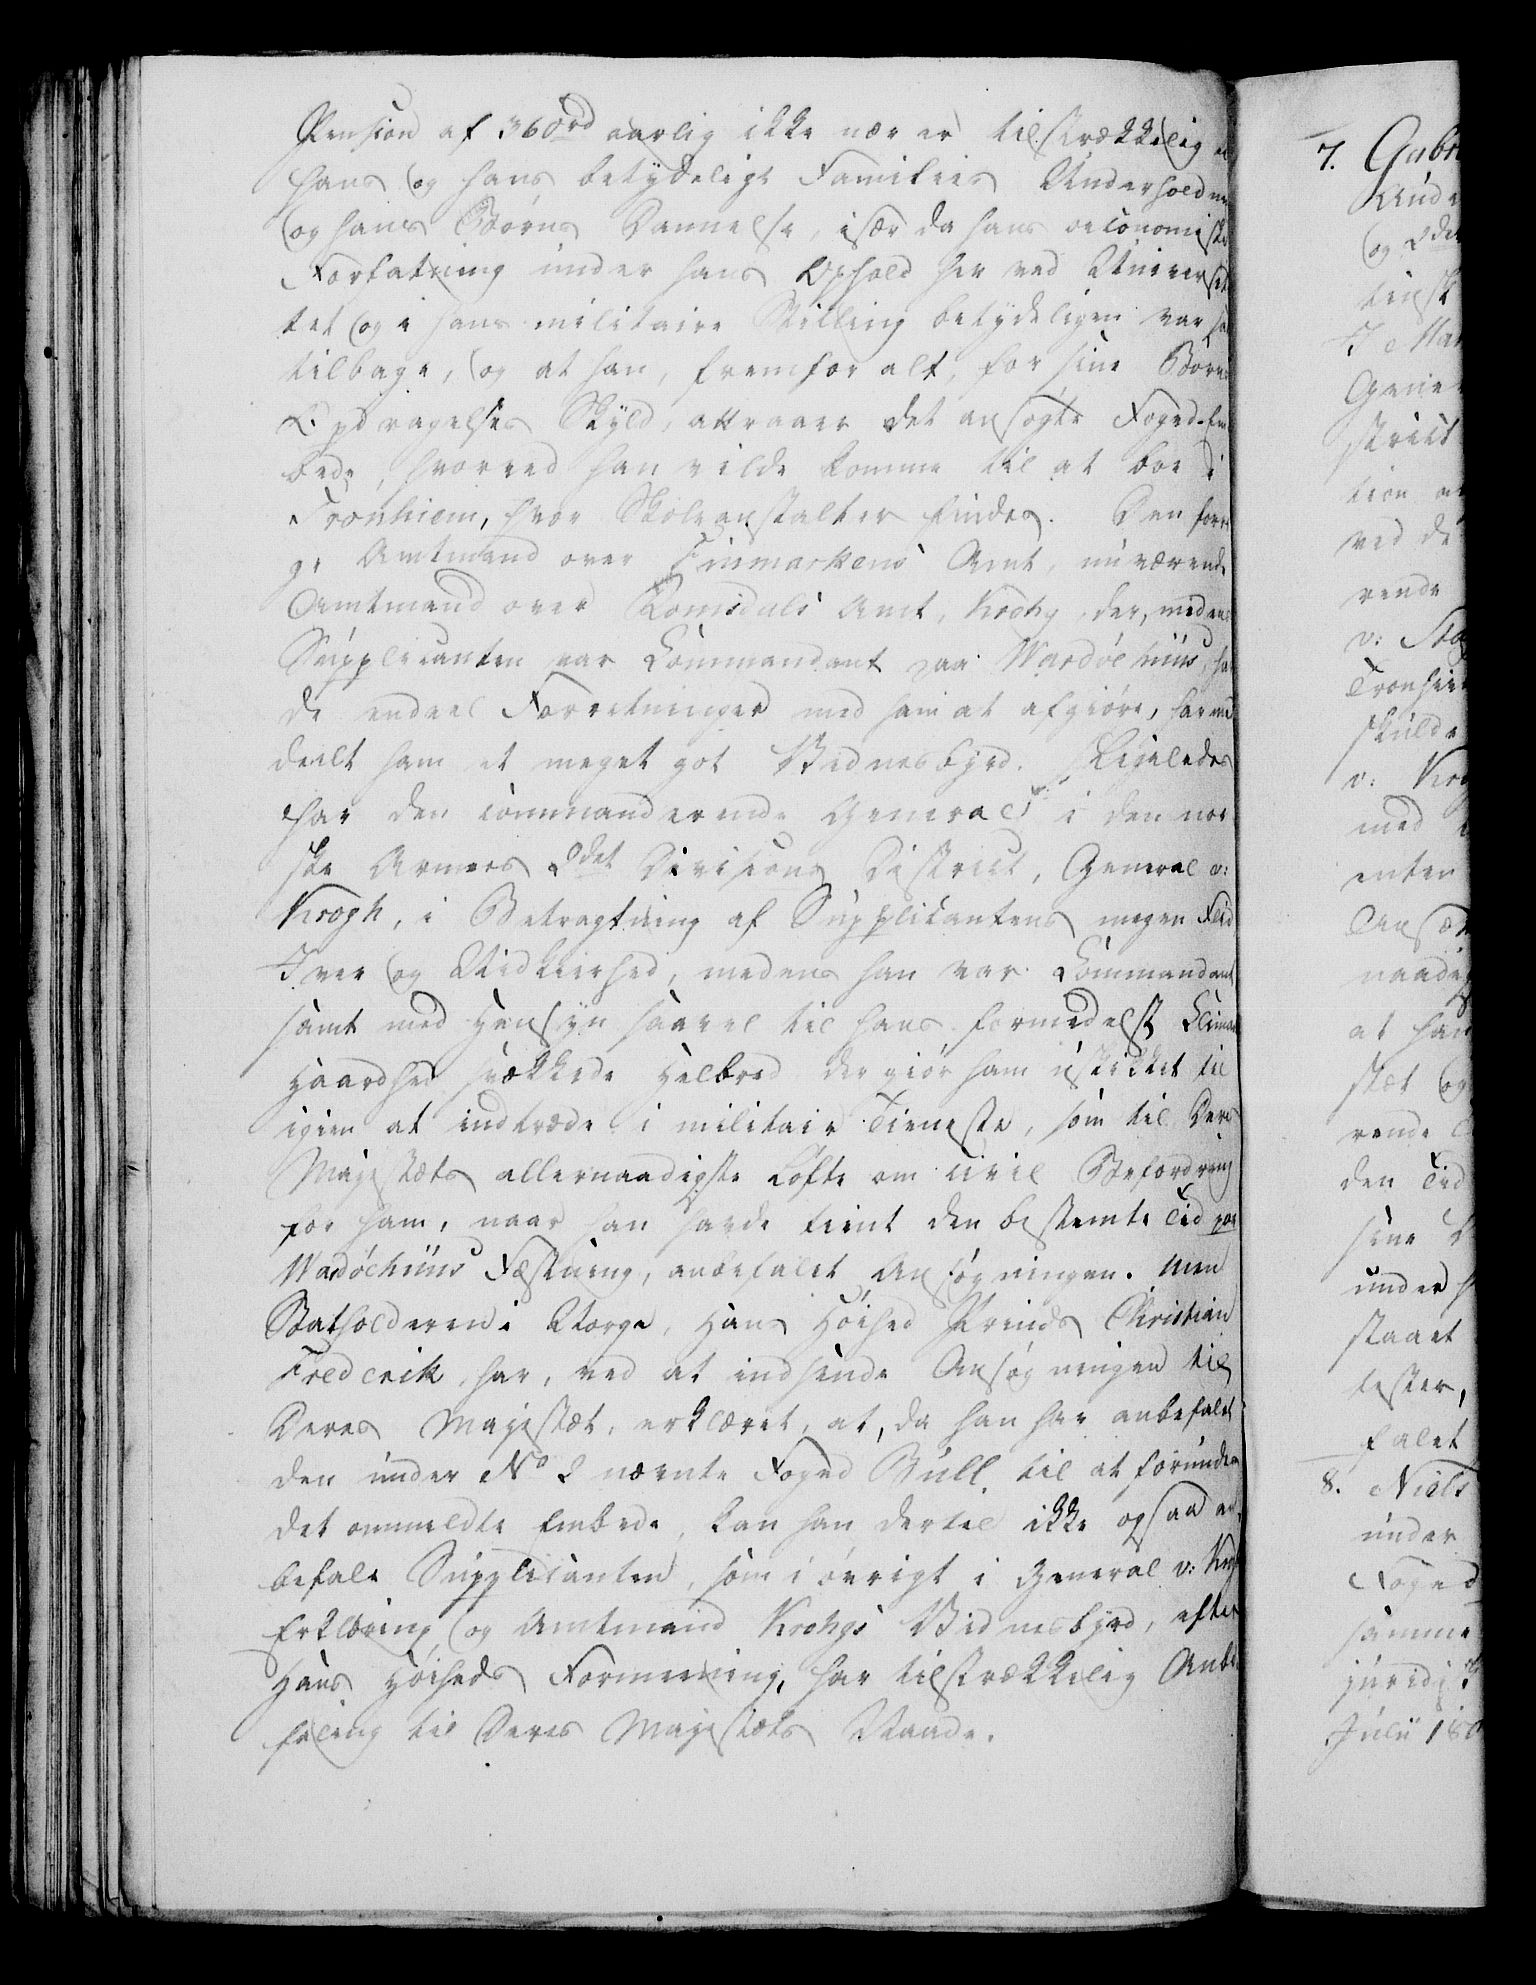 Pension af 360rd aarlig ikke nær er tilstrækkelig
hans og hans betydelige Families Underholdni
og hans Børns Dannelse, især da hans oeconomiske
Forfatning under hans Ophold her ved Universite
tet og i hans militaire Stilling betydeligen var
tilbage, og at han, fremfor alt, for sine Børns
Opdragelses Skyld, attraaer det ansøgte Foged-Em
bede, hvorved han vilde komme til at boe i
Tronhiem, hvor Skoleanstalter findes. Den forri
ge Amtmand over Finmarkens Amt, nuværende
Amtmand over Romsdals Amt, Krohg, der, medens
Supplicanten var Commandant paa Wardøehuus, ha
de endeel Forretninger med ham at afgiøre, har med
deelt ham et meget got Vidnesbyrd. Ligeledes
har den commanderende General i den nor
ske Armees 2det Divisions District, General v:
Krogh, i Betragtning af Supplicantens megen Flid
Iver og Vidkierhed, medens han var Commandant
samt med Hensyn saavel til hans formedelst Climat
Haardhed svækkede Helbred der giør ham uskikket til
igien at indtræde i militair Tieneste, som til Deres
Majestæts allernaadigste Løfte om civil Befordring
for ham, naar han havde tient den bestemte Tid paa
Wardøehuus Fæstning, anbefalet Ansøgningen. Men
Statholderen i Norge, Hans Høihed Prinds Christian
Frederik, har, ved at indsende Ansøgningen til
Deres Majestæt, erklæret, at, da han har anbefalet
den under No 2 nævnte Foged Bull til at forundes
det ommeldte Embede, kan han dertil ikke ogsaa an
befale Supplicanten, som i øvrigt i General v: Krogh
Erklæring og Amtmand Krohgs Vidnesbyrd, efter
Hans Høiheds Formeening, har tilstrækkelig Anbe
faling til Deres Majestæts Naade.
7. Gabr
Lieute
og 2det
tensk
I Mar
Gene
strict
tion
ved de
rende
v:
Tronhie
skulde
v: Krog
med
enten
Ansæt
naadig
at han
stæt og
rende
den Tid
sine
under
staaet
tester,
falet
8. Niels
under
Foged
samme
juridisk
Julii 180